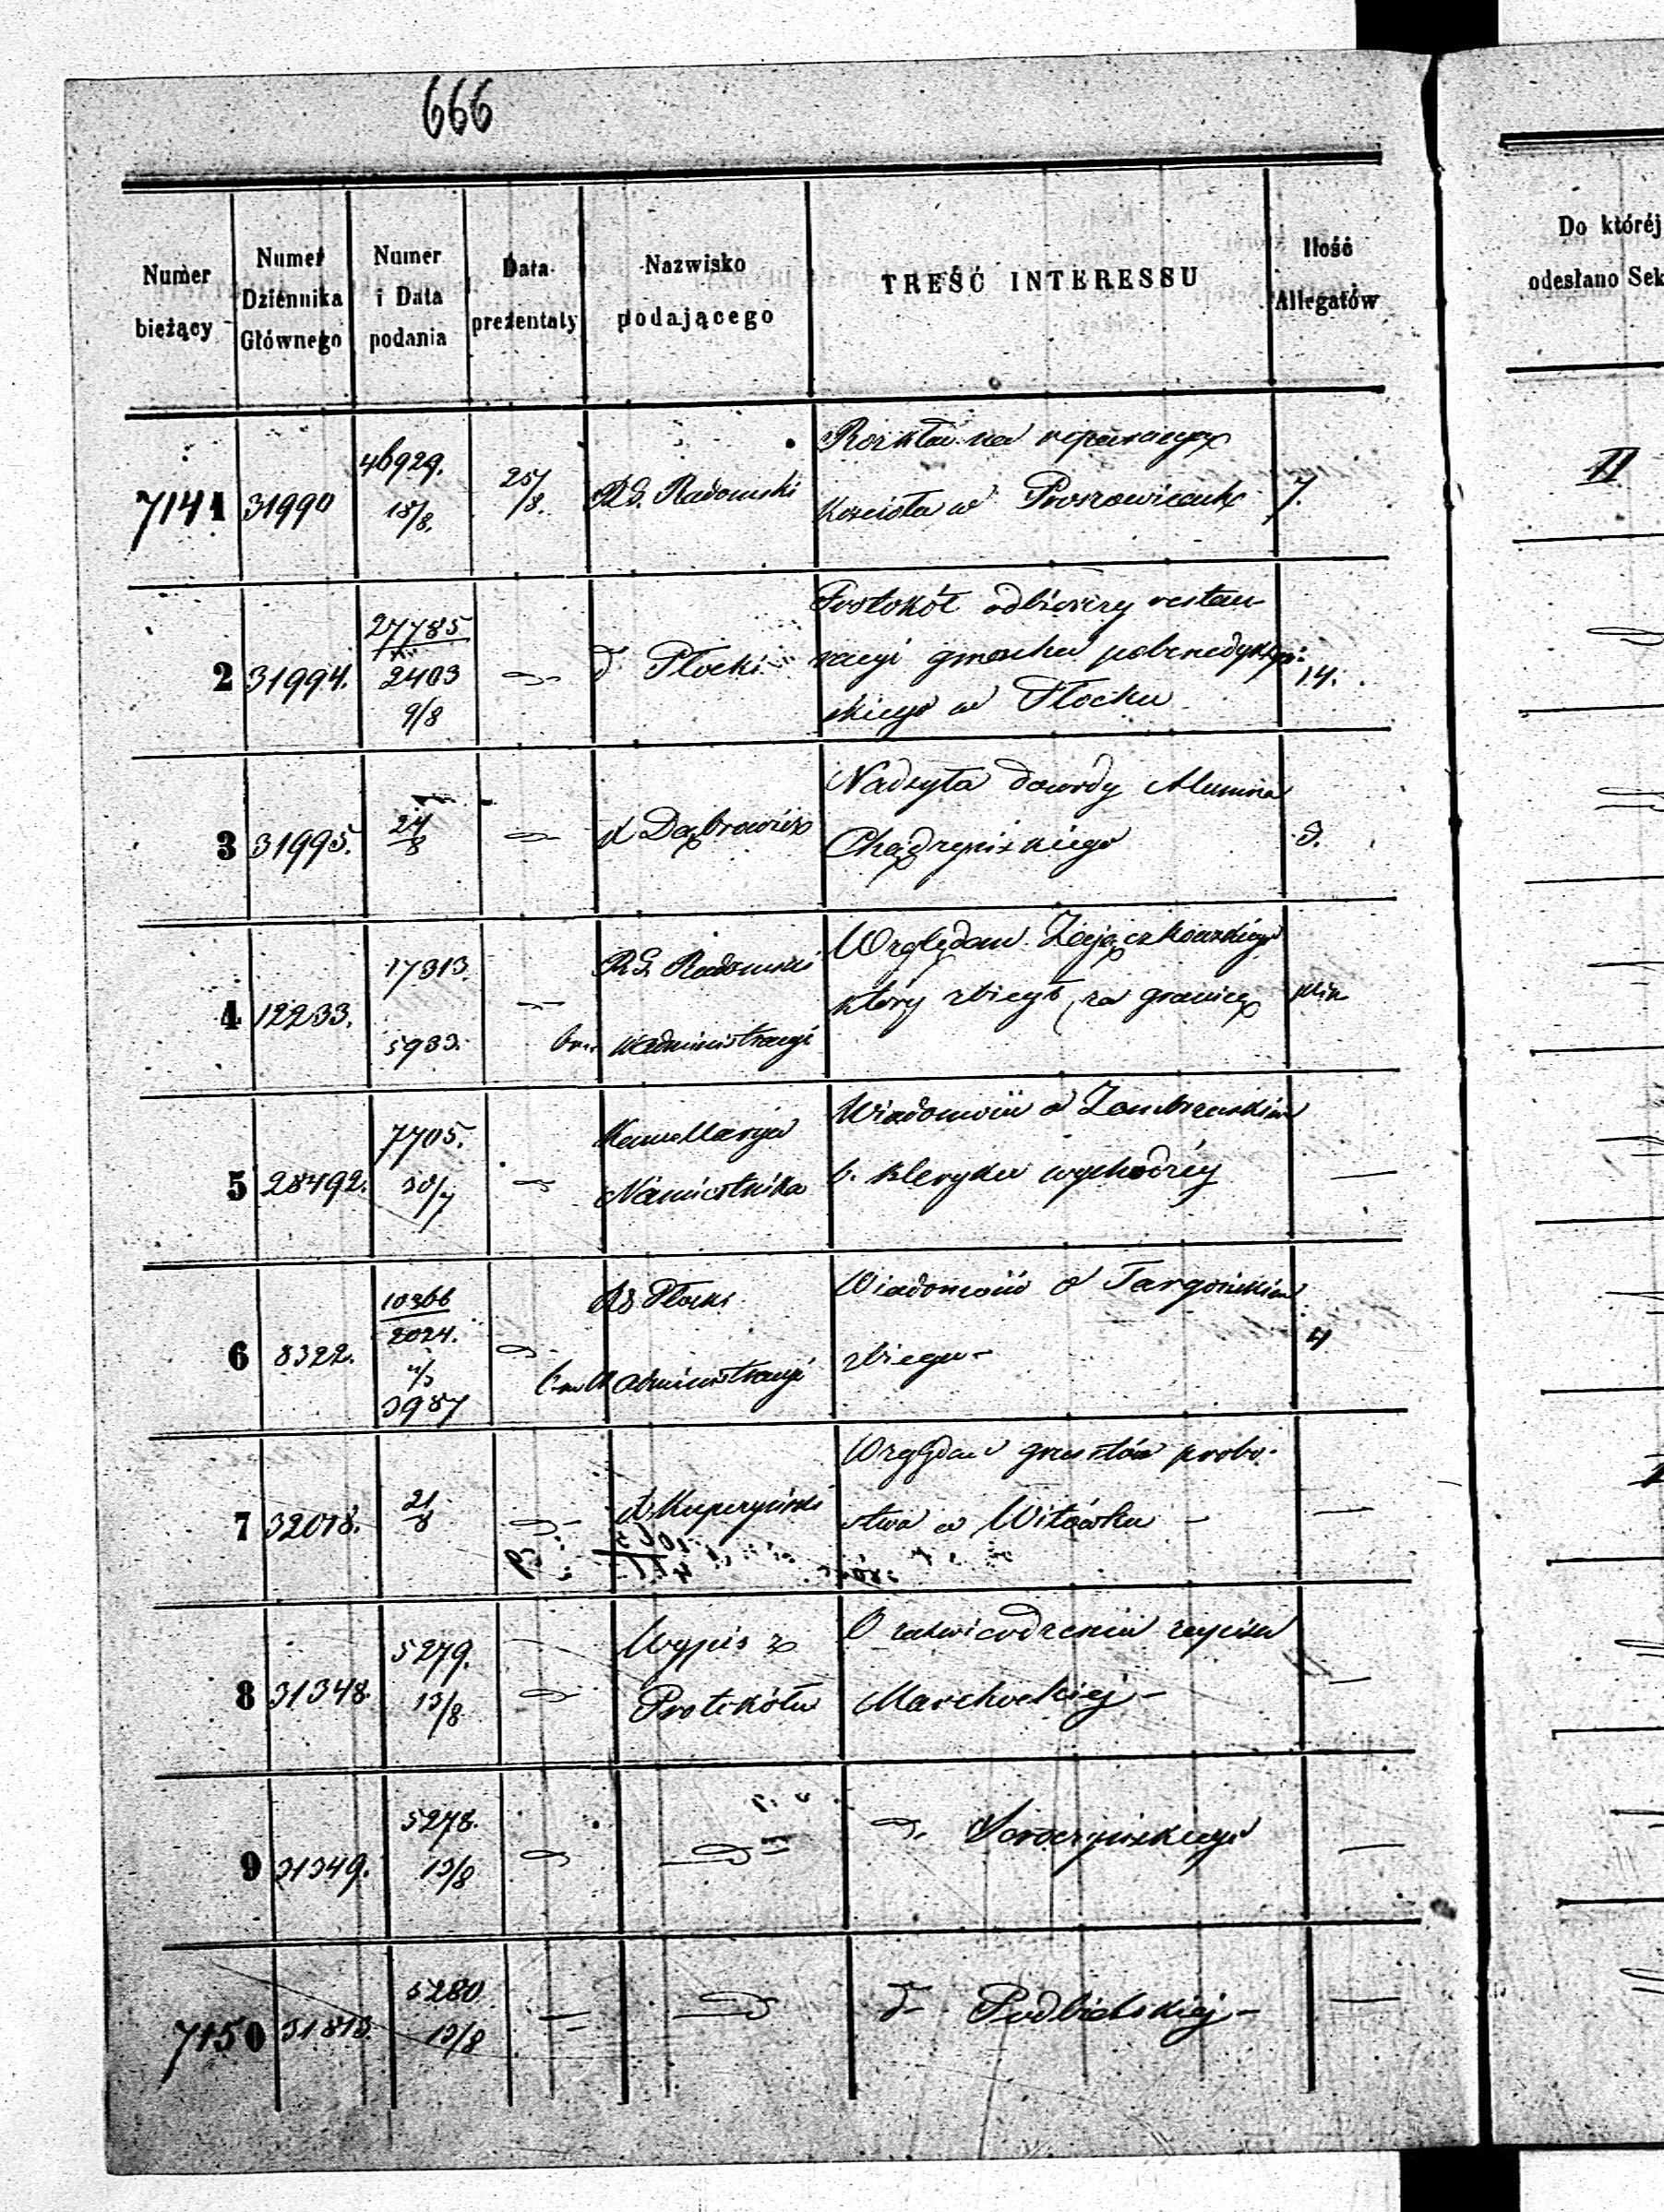 666
Numer bieżący
Numer Dziennika Głównego
Numer i Data podania
Data prezentaty
Nazwisko podającego
TREŚĆ INTERESSU
Ilość Allegatów
Do któréj
odesłano Sek
7141 31990 46929. 18/8. 25/8. R.G. Radomski
Rozkład na reparacyą
Kościoła w Proszowicach 7.
II
2 31994. 27785 2403 9/8 d Płocki
Protokół odbiorczy restau-
racyi gmachu pobenedyktyń-
skiego w Płocku 14.
3 31995. 24/8 X Dąbrowicz
Nadsyła dowody Alumna
Chądzyńskiego 3.
4 12233. 17313 5933. RG. Radomski
Administracyi
Względem Zajączkowskiego
który zbiegł za granicę plik
5 28492. 7705. 30/7 Kancellarya
Namiestnika
Wiadomość o Zambrzuskim
b. kleryku wychodźcy —
6 8322. 10366 2024. 4/3 3987 RG Płocki
Administracyi
Wiadomość o Targońskim
zbiegu — 4
7 32018. 21/8
Względem gruntów probo-
stwa w Witówku — —
8 31348. 5279. 13/8 Wypis z
Protokółu
O zatwierdzeniu zapisu
Marchockiej — —
9 31349. 5278. 13/8 d.
—
7150 5280 13/8 d- Podbielskiej — —